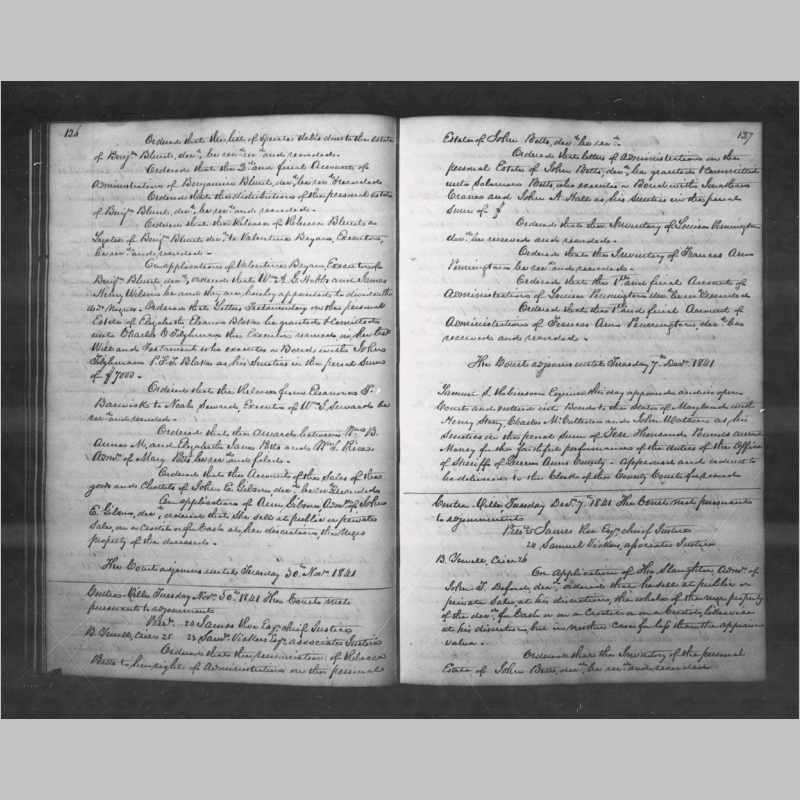 126
Ordered that the list of Sperate debts due to the estate
of Benjn Blunt, decd, be recd and recorded.
Ordered that the 2d and final Account of
Administration of Benjamin Blunt, decd, be recd & recorded
Ordered that the distribution of the personal estate
of Benjn Blunt, decd, be recd and recorded.
Ordered that the Release of Blunt a
Legatee of Benjn Blunt decd to Valentine Bryan, Executor,
be recd and recorded.
On application of Valentine Bryan Executor of
Benjn Blunt, decd, ordered that Wm A. G. Hobbs and James
Henry Wilson be and they are hereby appointed to divide the
decds Negroes. Ordered that Letters Testamentary on the personal
Estate of Elizabeth Eleanor Blake be granted & Committed
unto Charles the Executor named in her last
Will and Testament who executes a Bond with John
Fitzhuman P. F. T. Blake as his Sureties in the penal Sum
of $7000.
Ordered that the Release from Eleanora F.
Barwick to Noah Seward, Executor of Wm T. Seward be
recd and recorded.
Ordered that the Award between B.
Ann M. and Elizabeth Jane Potts and Wm S. Rice
Admr of Mary Potts be recd and filed.
Ordered that the Account of the Sales of the
goods and Chattels of John E. Gibson, decd, be recd & recorded
On application of Ann Gibson Admx of John
E. Gibson, decd, ordered that She sell at public or private
Sale, on a Credit or for Cash at her discretion, the Negro
property of the deceased.
The Court adjourns until Tuesday 30th Novr 1841
Centre Ville Tuesday Novr 30th 1841 The Court met
pursuant to adjournment
Prest 24 James Roe Esqr chief Justice
B. Tewell, Crier 25 23 Saml Vickers Esqr associate Justice
Ordered that the renunciation of Rebecca
Betts to her right of Administration on the personal
127
Estate of John Betts, decd, be recd.
Ordered that letters of Administration on the
personal Estate of John Betts, decd, be granted & Committed
unto Solomon Betts, who executes a Bond with Jonathan
Evans and John A. Hall as his Sureties in the penal
Sum of $
Ordered that the Inventory of Louisa Pennington
decd be received and recorded.
Ordered that the Inventory of Frances Ann
Pennington be recd and recorded.
Ordered that the 1st and final Account of
Administration of Louisa Pennington decd be recd & recorded
Ordered that the 1st and final Account of
Administration of Frances Ann Pennington, decd be
received and recorded.
The Court adjourns until Tuesday 7th Decr 1841
Samuel S. Robinson Esquire this day appeared and in open
Court and entered into Bond to the State of Maryland with
Henry Story, Charles McCollister and John Mathews as his
Sureties in the penal sum of Thousand Pounds current
Money for the faithful performance of the duties of the Office
of Sheriff of Queen Anns County. Approved and ordered to
be delivered to the Clerk of the County Court for record.
Centre Ville Tuesday Decr 7th 1841 The Court met pursuant
to adjournment
Prest 25 James Roe Esqr chief Justice
24 Samuel Vickers, associate Justice
B. Tewell, Crier 26
On Application of Thos Slaughter Admr of
John T. decd, ordered that he sell at public or
private Sale, at his discretion, the whole of the negro property
of the decd, for Cash or on a Credit, likewise
at his discretion, but in neither case for less than the appraised
value.
Ordered that the Inventory of the personal
Estate of John Betts, decd, be recd and recorded